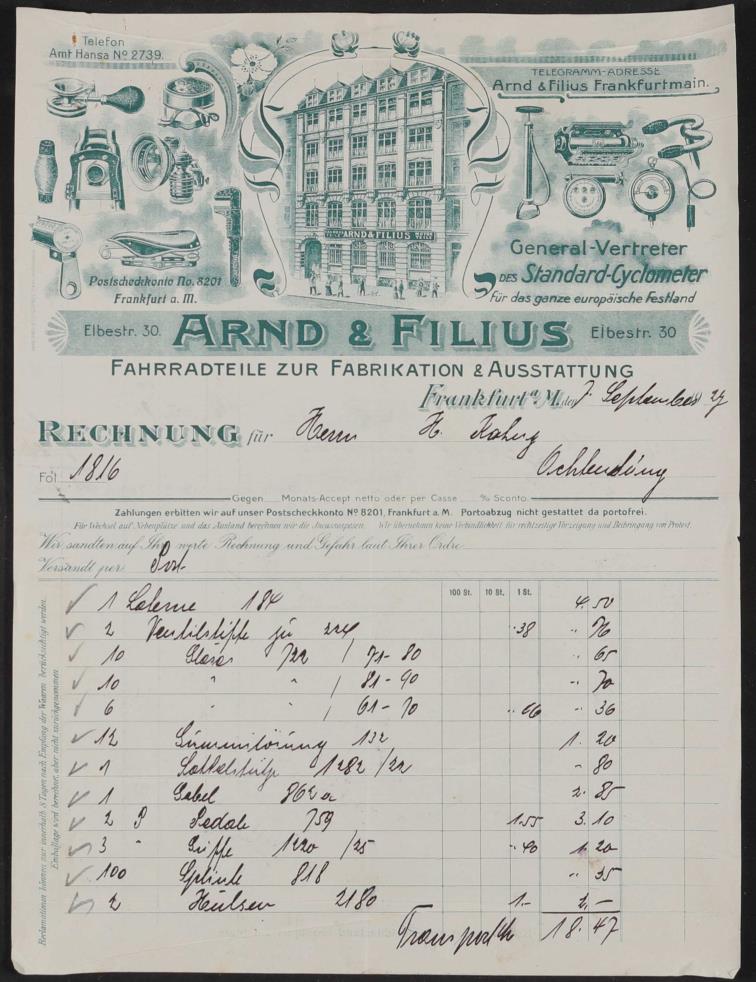 Telefon
Amt Hansa No 2739.
TELEGRAMM-ADRESSE
Arnd & Filius Frankfurtmain.
ARND & FILIUS
General-Vertreter
DES Standard-Cyclometer
für das ganze europäische Festland
Postscheckkonto No. 8201
Frankfurt a. M.
Elbestr. 30. ARND & FILIUS Elbestr. 30
FAHRRADTEILE ZUR FABRIKATION & AUSSTATTUNG
Frankfurt a. M. den 7. September 27
RECHNUNG für Herrn H.
Fol. 1816
Ochtendung
Gegen Monats-Accept netto oder per Casse % Sconto
Zahlungen erbitten wir auf unser Postscheckkonto No 8201, Frankfurt a. M. Portoabzug nicht gestattet da portofrei.
Für Wechsel auf Nebenplätze und das Ausland berechnen wir die Incassospesen. Wir übernehmen keine Verbindlichkeit für rechtzeitige Vorzeigung und Beibringung von Protest.
Wir sandten auf Ihre werte Rechnung und Gefahr laut Ihrer Ordre
Versandt per Post
100 St. 10 St. 1 St.
1 Laterne 184 4.50
2 Ventilstifte zu 224 ..38 .. 76
10 Gläser 722 / 71-80 .. 65
10 " " / 81-90 .. 70
6 " " / 61-70 ..06 .. 36
12 Gummilösung 132 1. 20
1 Sattelstütze 1282 /22 .. 80
1 Gabel 862a 2. 85
2 P Pedale 759 1.55 3. 10
3 " Griffe 1220 /25 ..40 1. 20
100 Splinte 818 .. 35
2 Hülsen 2180 1.- 2. -
Transport 18. 47
Reclamationen können nur innerhalb 8 Tagen nach Empfang der Waaren berücksichtigt werden.
Emballage wird berechnet, aber nicht zurückgenommen.